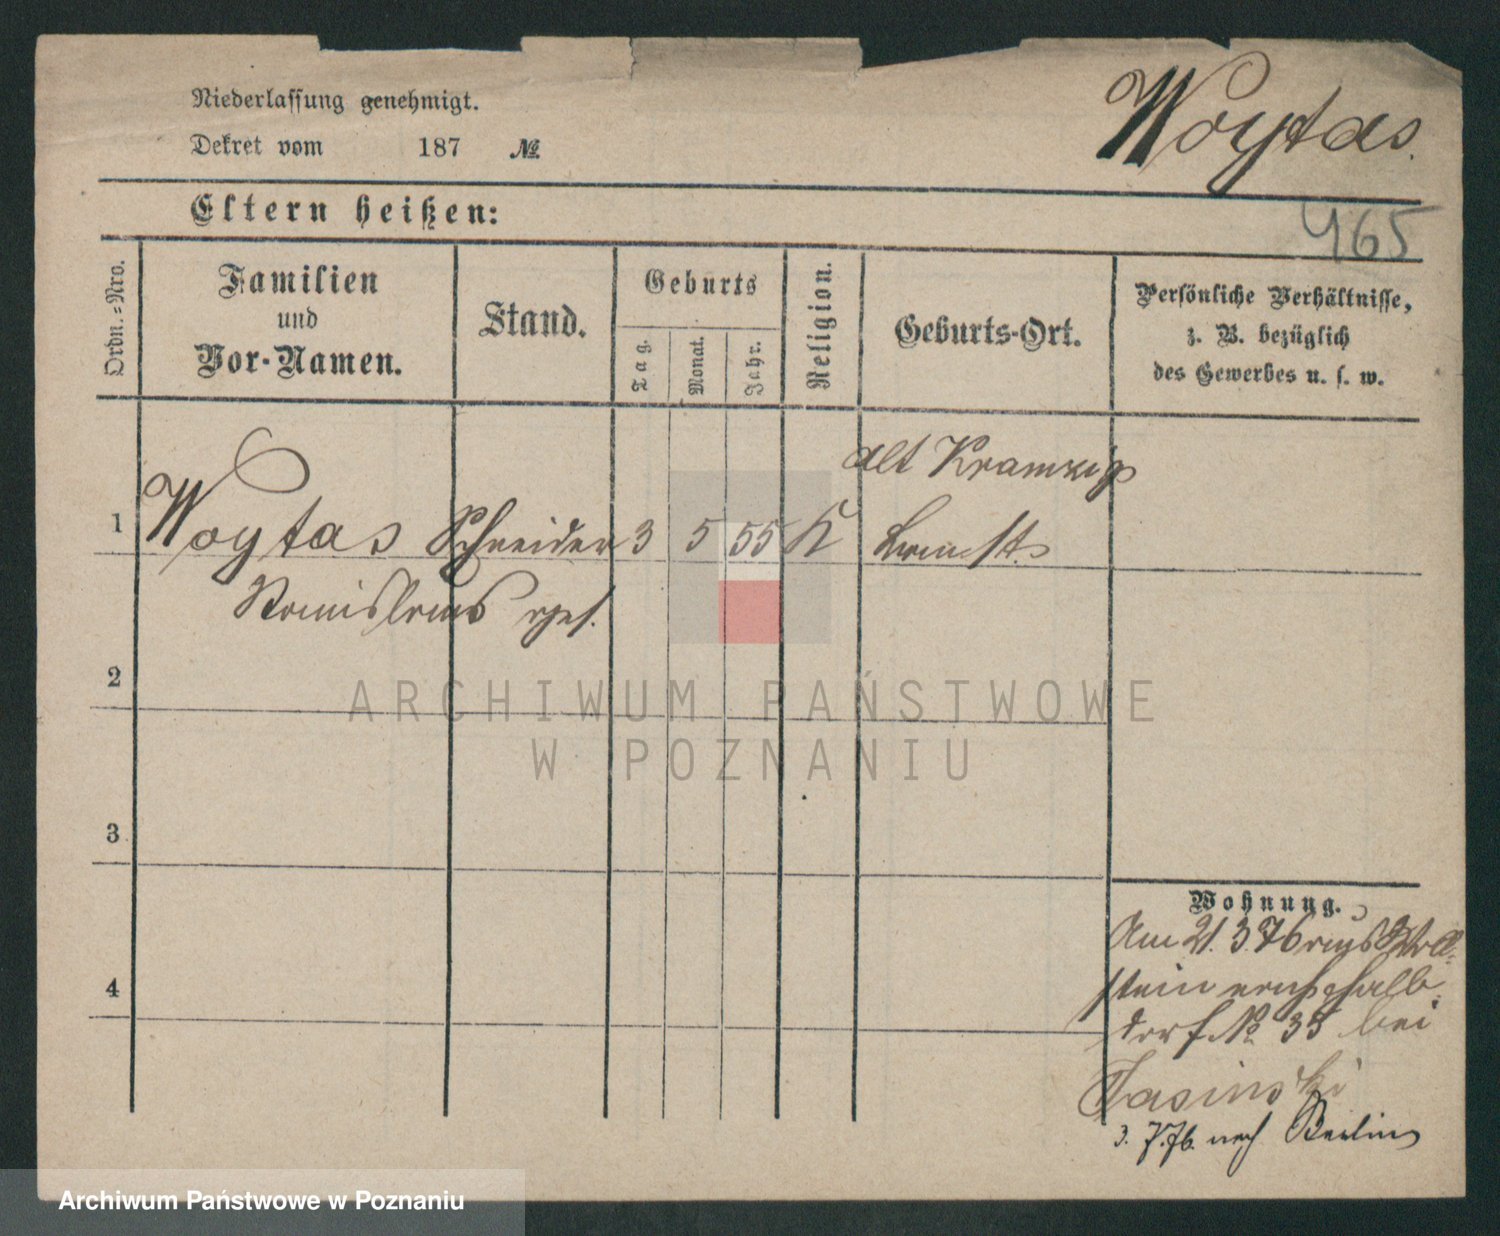 Niederlassung genehmigt.
Dekret vom 187 №
Woytas.
Eltern heißen:
465
Ordn.=Nro.
Familien
und
Vor-Namen.
Stand.
Geburts
Tag.
Monat.
Jahr.
Religion.
Geburts-Ort.
Persönliche Verhältnisse,
z. B. bezüglich
des Gewerbes u. s. w.
Alt Kramzig
1 Woytas Schneider 3 5 55 K Bomst.
Stanislaus
2
3
4
Wohnung.
Am 21. 3. 76 aus Woll-
stein nach Halb-
dorf No 35 bei
Jasinski
3. 7. 76. nach Berlin
ARCHIWUM PAŃSTWOWE
W POZNANIU
Archiwum Państwowe w Poznaniu